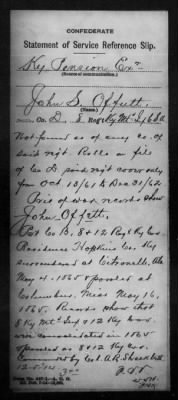 CONFEDERATE
Statement of Service Reference Slip.
Ky Pension Exr
(Source of communication.)
John S. Offutt
(Name.)
Co. D, 8 Reg't Ky Mt. Inf C S A
Not found as of any co. of
said regt. Rolls on file
of Co D. said regt cover only
from Oct 13/61 to Dec 31/62
Pris of war records show
John Offutt,
Pvt Co B, 8 & 12 Regt Ky Cav
Residence Hopkins Co. Ky
surrendered at Citronelle, Ala
May 4, 1865 & paroled at
Columbus, Miss May 16,
1865. Records show that
8 Ky Mt. Inf & 12 Ky Cav.
were consolidated in 1865
& paroled as 8 & 12 Ky Cav.
Commanded by Col. A R Shacklett
12-5-14